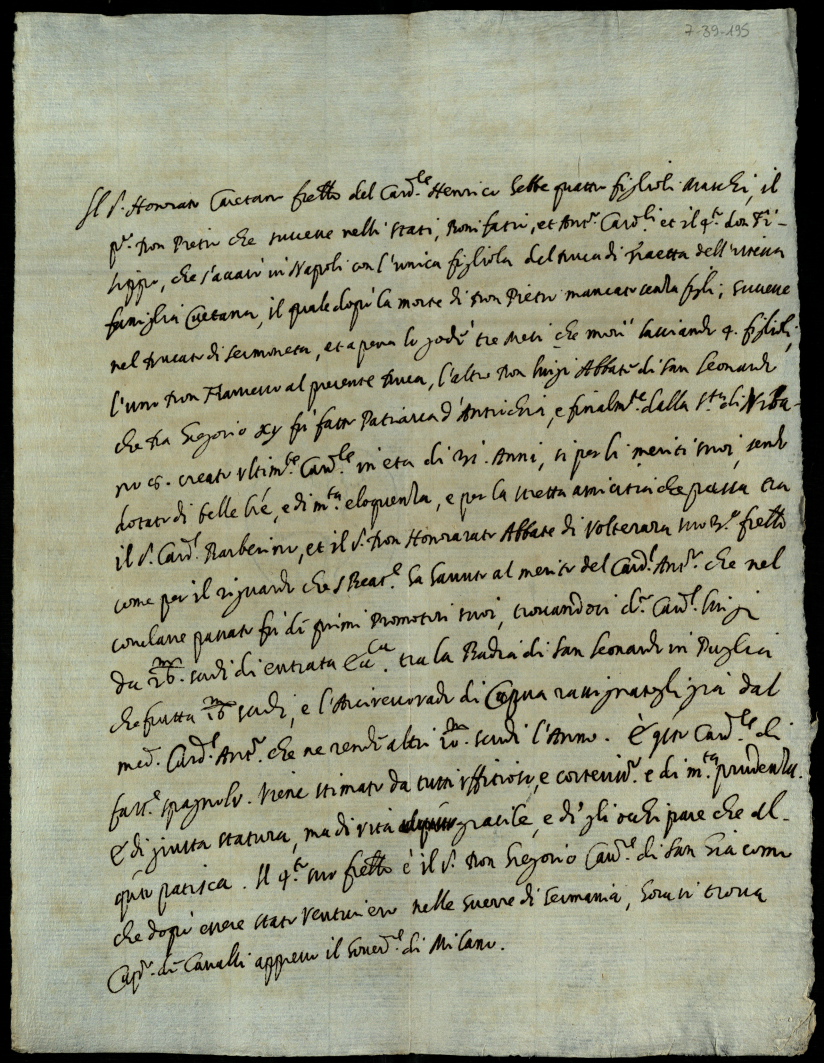 7-39-195
Il S.r Honorato Caetano fr̃ello del Card.le Henrico hebbe quattro figlioli Maschi, il
p.o Don Pietro che successe nelli stati, Bonifatio, et Ant.o Card.li et il 4.o don Fi-
lippo, che s'accasò in Napoli con l'unica figliola del Duca di Traetta dell'istessa
famiglia Caetana, il quale dopò la morte di Don Pietro mancato senza figli, successe
nel Ducato di Sermoneta, et apena lo godè tre Mesi che morì lasciando 4. figlioli,
l'uno Don Francesco al presente Duca, l'altro Don luigi Abbate di San Leonardo
che da Gregorio XV fù fatto Patriarca d'Antiochia, e finalm.te dalla S.tà di Urba-
no es. creato ultim.te Card.le in età di 31. Anni, sì per li meriti suoi, sendo
dotato di belle l'ré, e di m.ta eloquenza, e per la stretta amicitia che passa tra
il S. Card.l Barberino, et il S. Don Honorato Abbate di Volterara suo 3.o fr̃ello
come per il riguardo che S Beat.e ha havuto al merito del Card.l Ant.o che nel
conclave passato fù di primi Promotori suoi, trovandosi d.o Card.l luigi
da scudi di entrata tra la Badia di San Leonardo in Puglia
che frutta scudi, e l'Arcivescovado di Capua rassignatogli già dal
med. Card.l Ant.o che ne rende altri scudi l'Anno. È q̃sto Card.le di
fatt.e spagnolo. Viene stimato da tutti uffitioso, e cortesiss.o e di m.ta prudenza.
È di giusta statura, ma di vita gracile, e di gli occhi pare che al-
q̃to patisca. Il 4.to suo fr̃ello è il S. Don Gregorio Cav.re di San Giacomo
che dopò essere stato Venturiero nelle Guerre di Germania, hora si trova
Cap.o di Cavalli appresso il Gover.re di Milano.